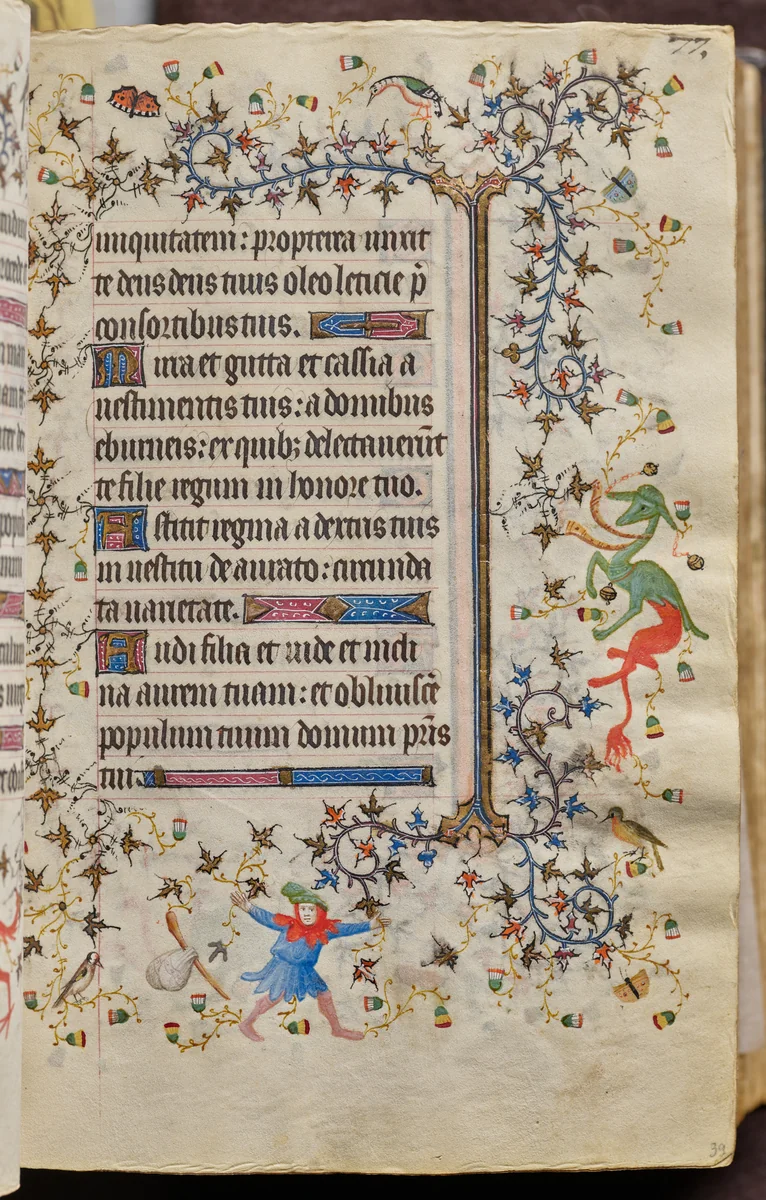 77,
iniquitatem: propterea unxit
te deus deus tuus oleo leticie p̄
consortibus tuis.
Mirra et gutta et cassia a
uestimentis tuis: a domibus
eburneis: ex quibꝫ delectauerūt
te filie regum in honore tuo.
Astitit regina a dextris tuis
in uestitu de aurato: circunda
ta uarietate.
Audi filia et uide et incli
na aurem tuam: et obliuiscē
populum tuum domum pr̄is
tui.
39